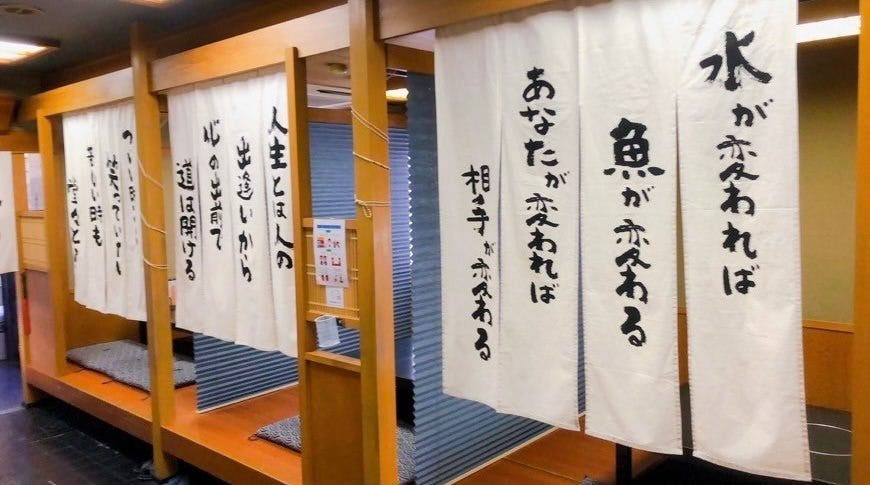 水が変われば
魚が変わる
あなたが変われば
相手が変わる
人生とは人の
出逢いから
心の出前で
道は開ける
笑っていても
苦しい時も
堂々と